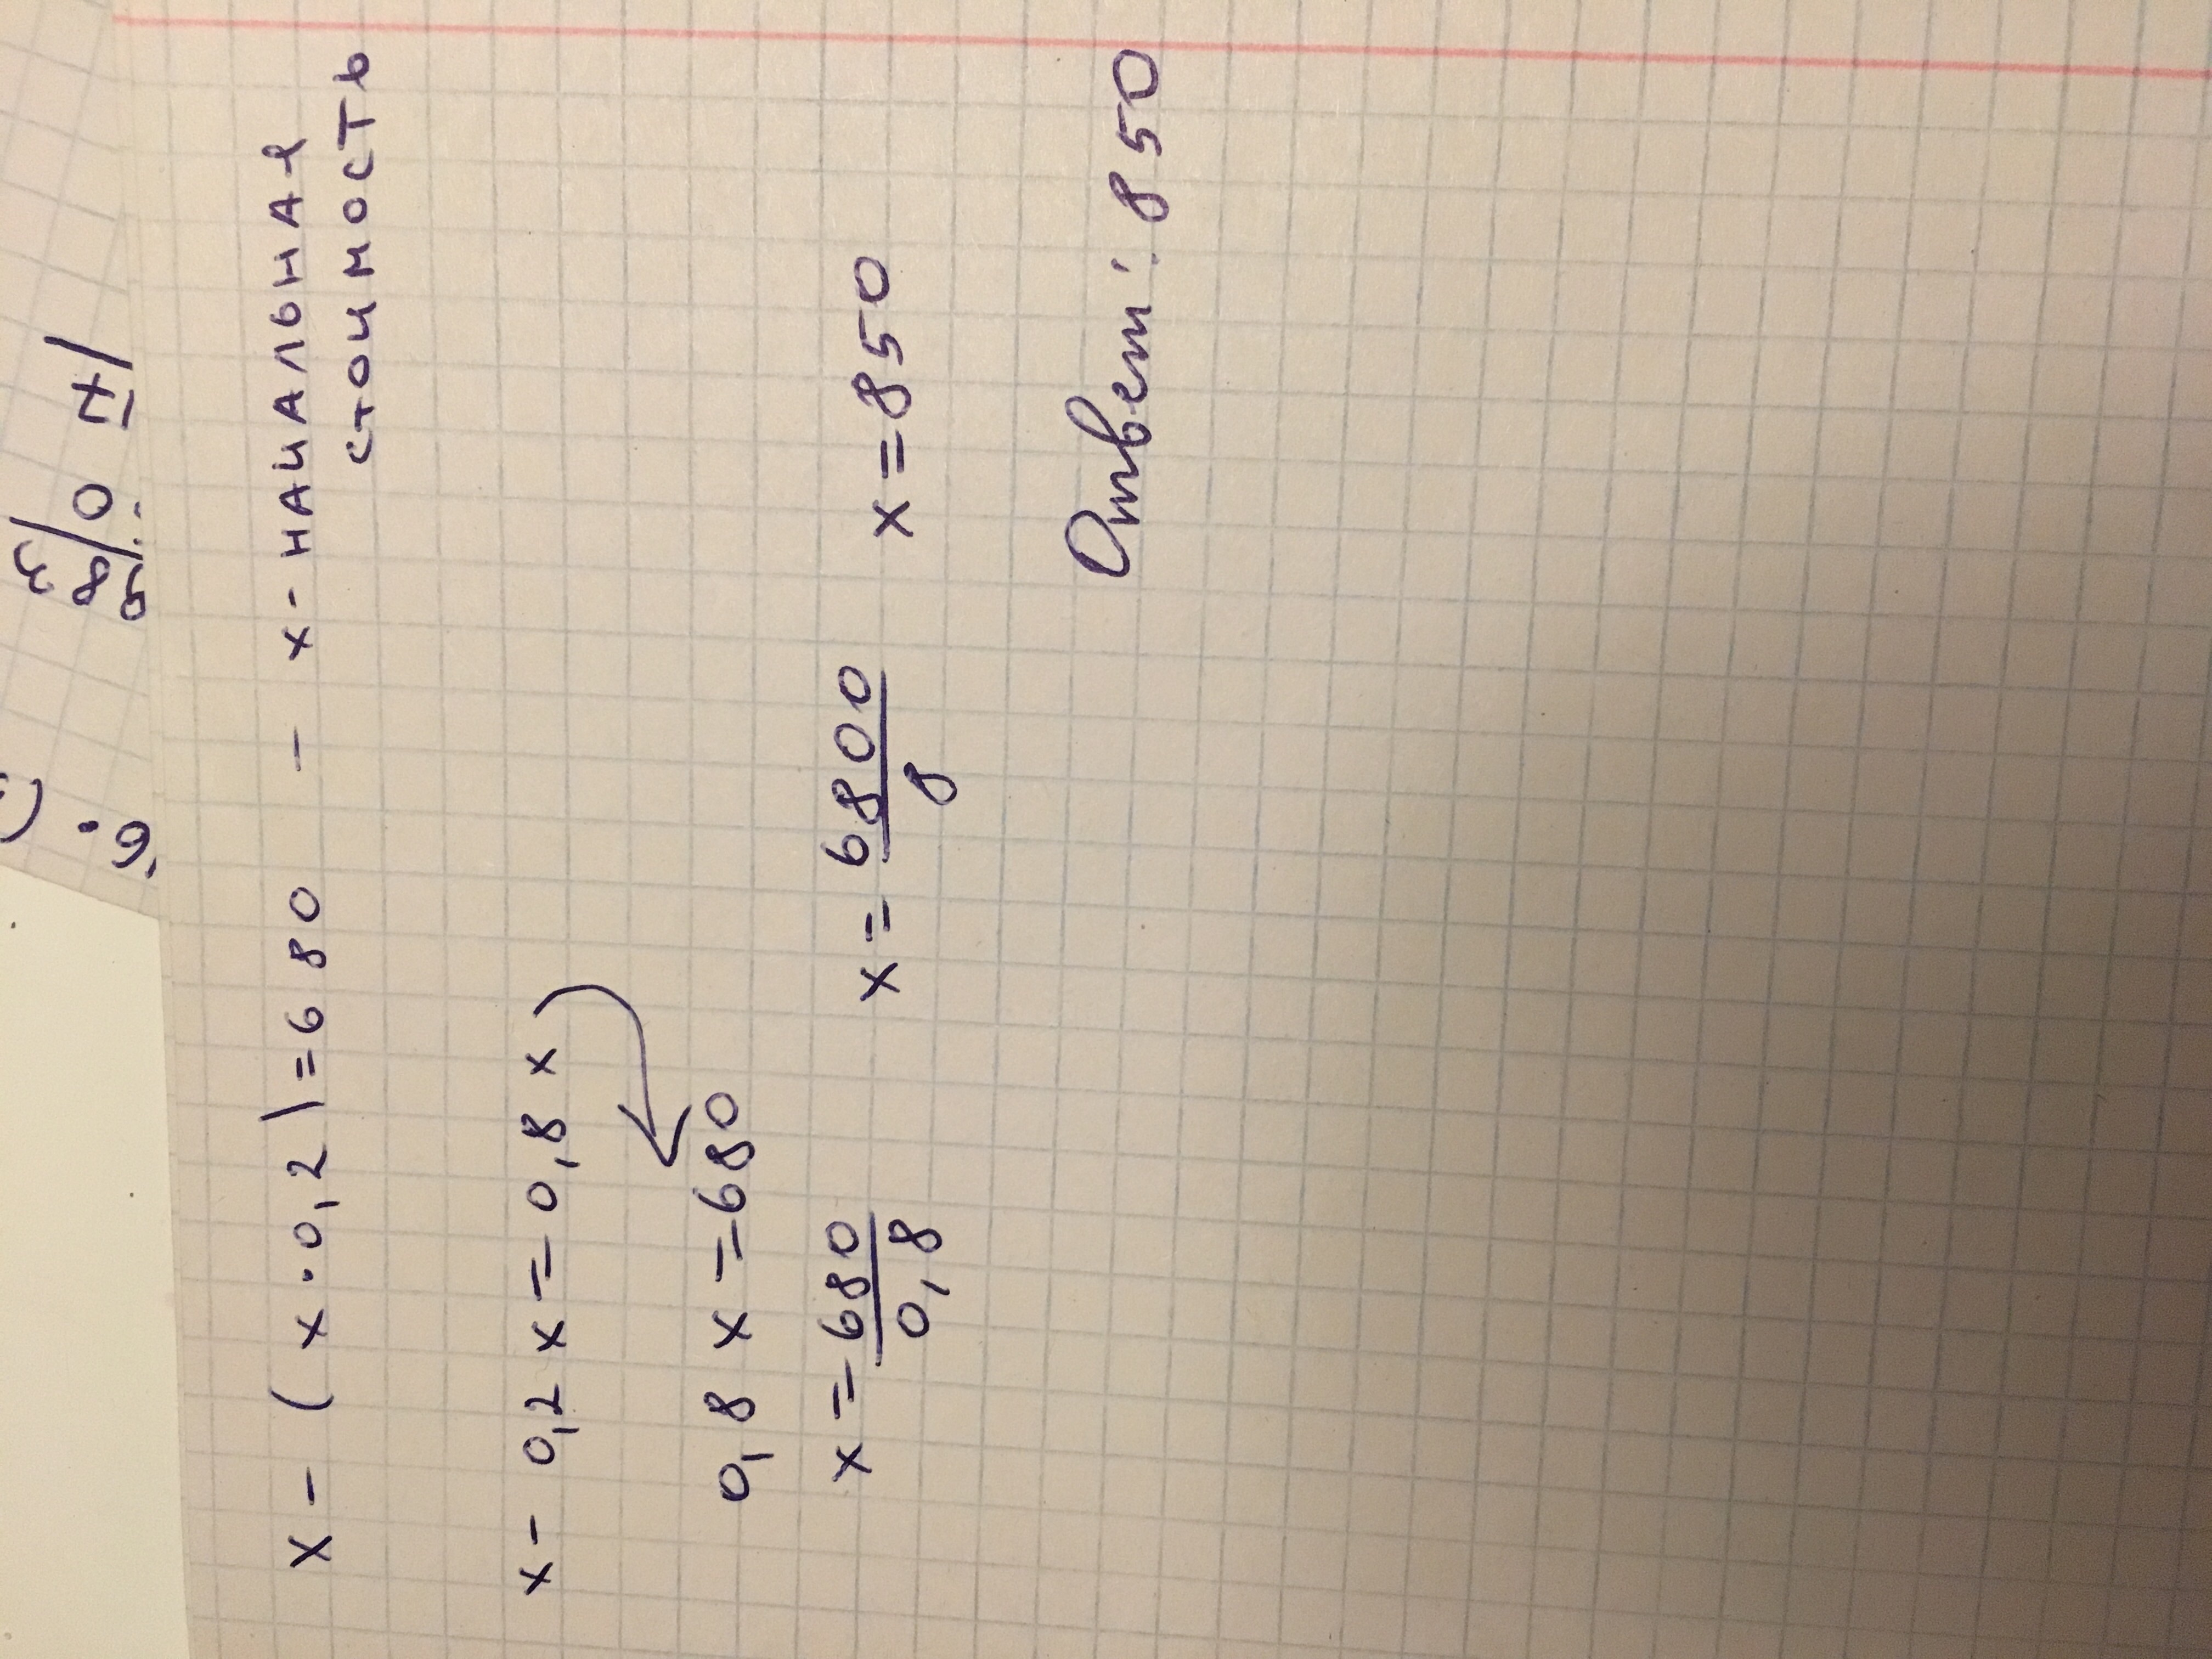 x - (x · 0,2) = 680 - x - НАЧАЛЬНАЯ
СТОИМОСТЬ
x - 0,2 x = 0,8 x
0,8 x = 680
x = 680/0,8 x = 6800/8 x = 850
Ответ: 850